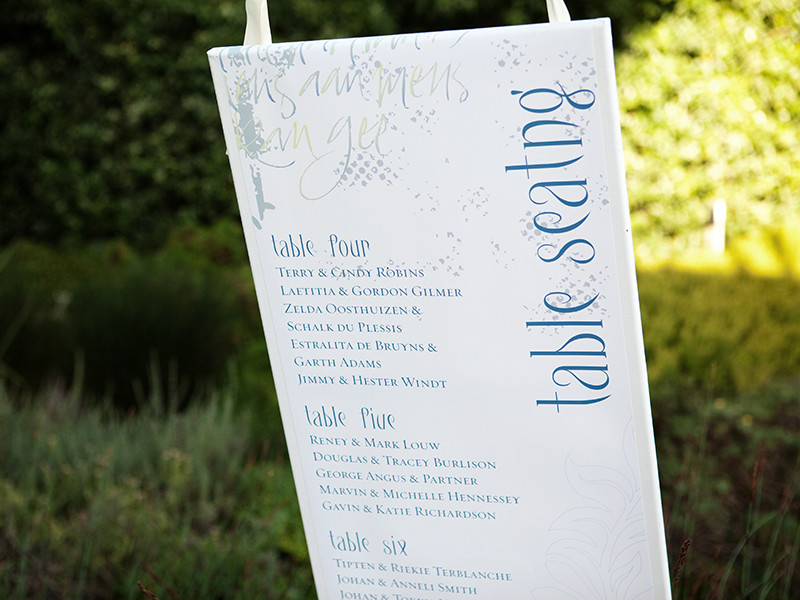 ons aan mens
kan gee
table seating
table four
Terry & Cindy Robins
Laetitia & Gordon Gilmer
Zelda Oosthuizen &
Schalk du Plessis
Estralita de Bruyns &
Garth Adams
Jimmy & Hester Windt
table five
Reney & Mark Louw
Douglas & Tracey Burlison
George Angus & Partner
Marvin & Michelle Hennessey
Gavin & Katie Richardson
table six
Tipten & Riekie Terblanche
Johan & Anneli Smith
Johan &